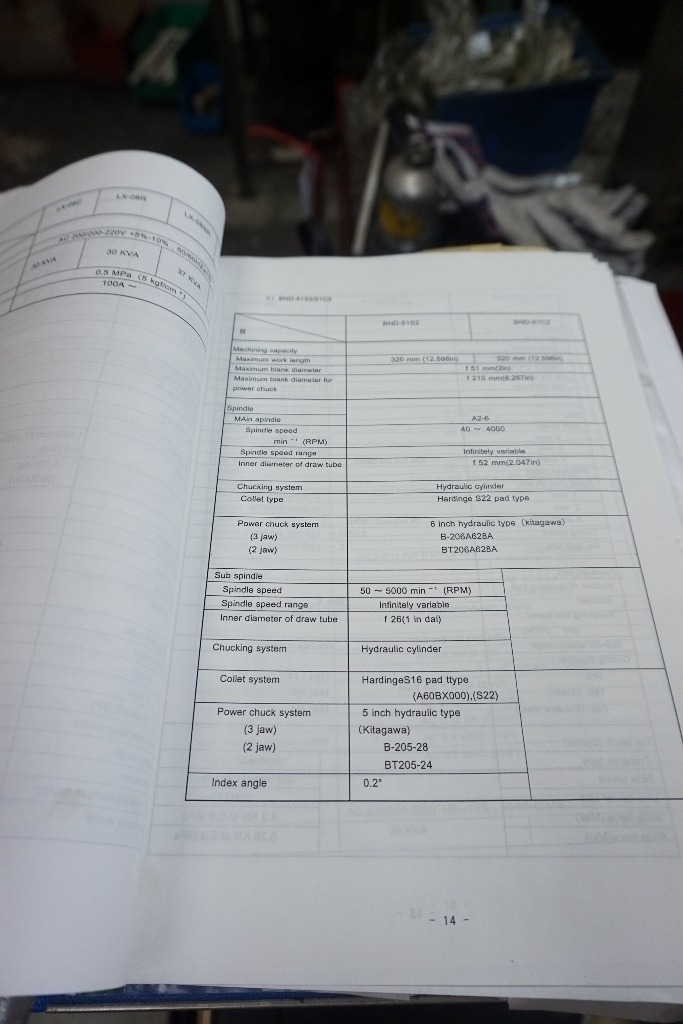 LX-06C LX-08R
AC 200/200-220V +5%-10%
30 KVA 30 KVA 37 KVA
0.5 MPa (5 kgf/cm²)
100A ~
5) BND-51S2/51C2
BND-51S2 BND-51C2
Machining capacity
Maximum work length 320 mm (12.598in) 320 mm (12.598in)
Maximum blank diameter f 51 mm(2in)
Maximum blank diameter for f 210 mm(8.267in)
power chuck
Spindle
MAin spindle A2-6
Spindle speed 40 ~ 4000
min⁻¹ (RPM)
Spindle speed range Infinitely variable
Inner diameter of draw tube f 52 mm(2.047in)
Chucking system Hydraulic cylinder
Collet type Hardinge S22 pad type
Power chuck system 6 inch hydraulic type (kitagawa)
(3 jaw) B-206A628A
(2 jaw) BT206A628A
Sub spindle
Spindle speed 50 ~ 5000 min⁻¹ (RPM)
Spindle speed range Infinitely variable
Inner diameter of draw tube f 26(1 in dal)
Chucking system Hydraulic cylinder
Collet system HardingeS16 pad ttype
(A60BX000),(S22)
Power chuck system 5 inch hydraulic type
(3 jaw) (Kitagawa)
(2 jaw) B-205-28
BT205-24
Index angle 0.2°
- 14 -